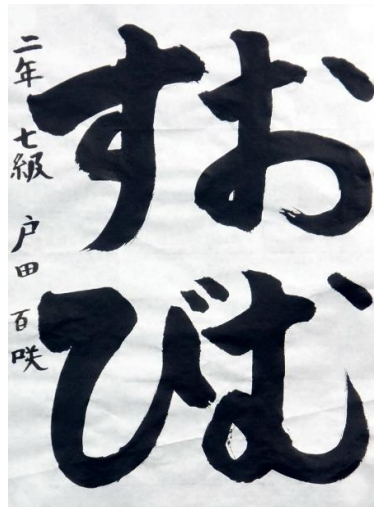 おむ
すび
二年 七級 戸田 百咲